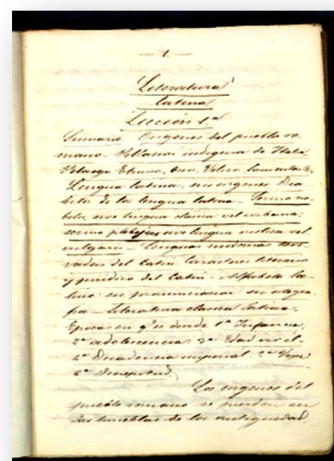 — 1. —
Literatura
latina
Lección 1ª
Sumario Orígenes del pueblo ro
mano. indígena de Italia
Pelasga Etrusco, Osco, Volsco,
Lengua latina, sus orígenes Dia
lectos de la lengua latina. Sermo no
bilis, sive lingua clasica vel urbana:
sermo plebejus, sive lingua rustica vel
vulgaris. Lenguas modernas deri
vadas del latin Caracteres literario
y juridico del latin. Alfabeto la
tino: su pronunciacion: su ortogra
fia — Literatura clasica latina.
Epocas en q.e se divide 1ª Infancia,
2ª adolescencia, 3ª Edad viril,
4ª Decadencia imperial 5ª Vejez
6ª
Los orígenes del
pueblo romano se pierden en
las tinieblas de la antigüedad